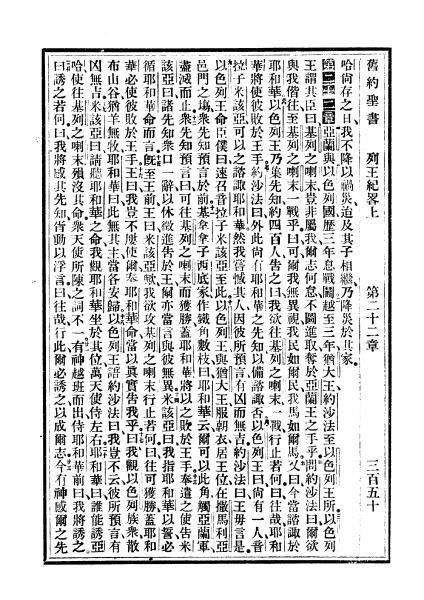 舊約聖書 列王紀畧上 第二十二章 三百五十
哈尙存之日我不降以禍災迨及其子相繼乃降災於其家
第二十二章 亞蘭與以色列國歷三年息戰鬭越至三年猶大王約沙法至以色列王所以色列
王謂其臣曰基列之喇末豈非屬我爾志何怠不圖進取奪於亞蘭王之手乎問約沙法曰爾欲
與我偕往至基列之喇末一戰乎曰可爾我無異視我民如爾民我馬如爾馬又曰今當諮諏於
耶和華以色列王乃集先知約四百人告之曰我欲往基列之喇末一戰行止若何曰往哉耶和
華將使彼敗於王手約沙法曰外此尙有耶和華之先知以備諮諏否以色列王曰尙有一人音
拉子米該亞可以之諮諏耶和華然我嘗憾其人因彼所預言有凶而無吉約沙法曰王毋言是
以色列王命臣僕曰速召音拉子米該亞至此以色列王與猶大王服朝衣居王位在撒馬利亞
邑門之塲衆先知預言於前基拿拿子西底家作鐵角數枚曰耶和華云爾可以此角觸亞蘭軍
盡滅而止衆先知預言曰可往基列之喇末而獲勝蓋耶和華將以之敗於王手奉遣之使告米
該亞曰諸先知衆口一辭以休徵進告於王爾亦當言與彼無異米該亞曰我指耶和華以誓必
循耶和華命而言旣至王前王曰米該亞歟我欲之基列之喇末行止若何曰往可獲勝蓋耶和
華必使彼敗於王手王曰我豈不屢使爾奉耶和華命當以眞實告我乎曰我觀以色列族衆散
布山谷猶羊無牧耶和華曰此無其主當各安歸以色列王語約沙法曰我豈不云彼所預言有
凶無吉米該亞曰請聽耶和華之命我觀耶和華坐於其位萬天使侍左右耶和華曰誰能誘亞
哈使往基列之喇末殞沒其命衆天使所陳之詞不一有神越班而出侍耶和華前曰我將誘之
曰誘之若何曰我將感其先知胥動以浮言曰往哉行此爾必誘之以成爾志今有神感爾之先